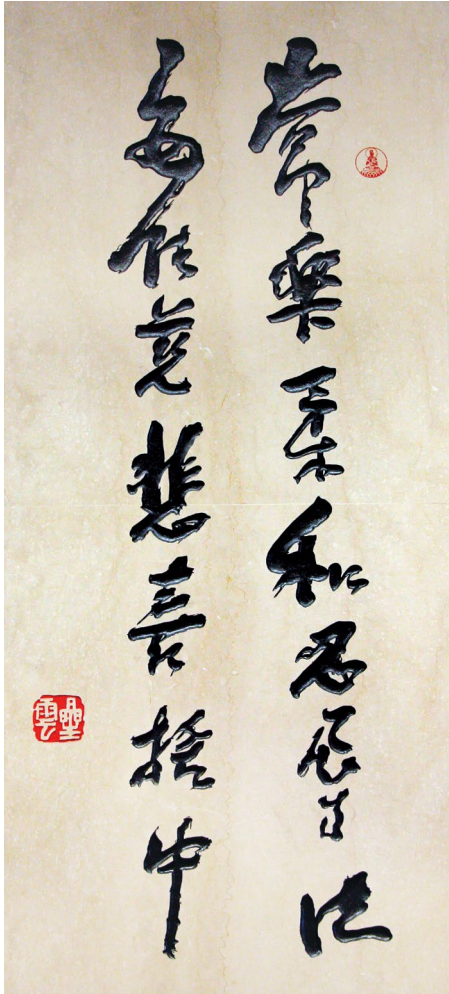 常樂柔和忍辱法
安住慈悲喜捨中
星雲